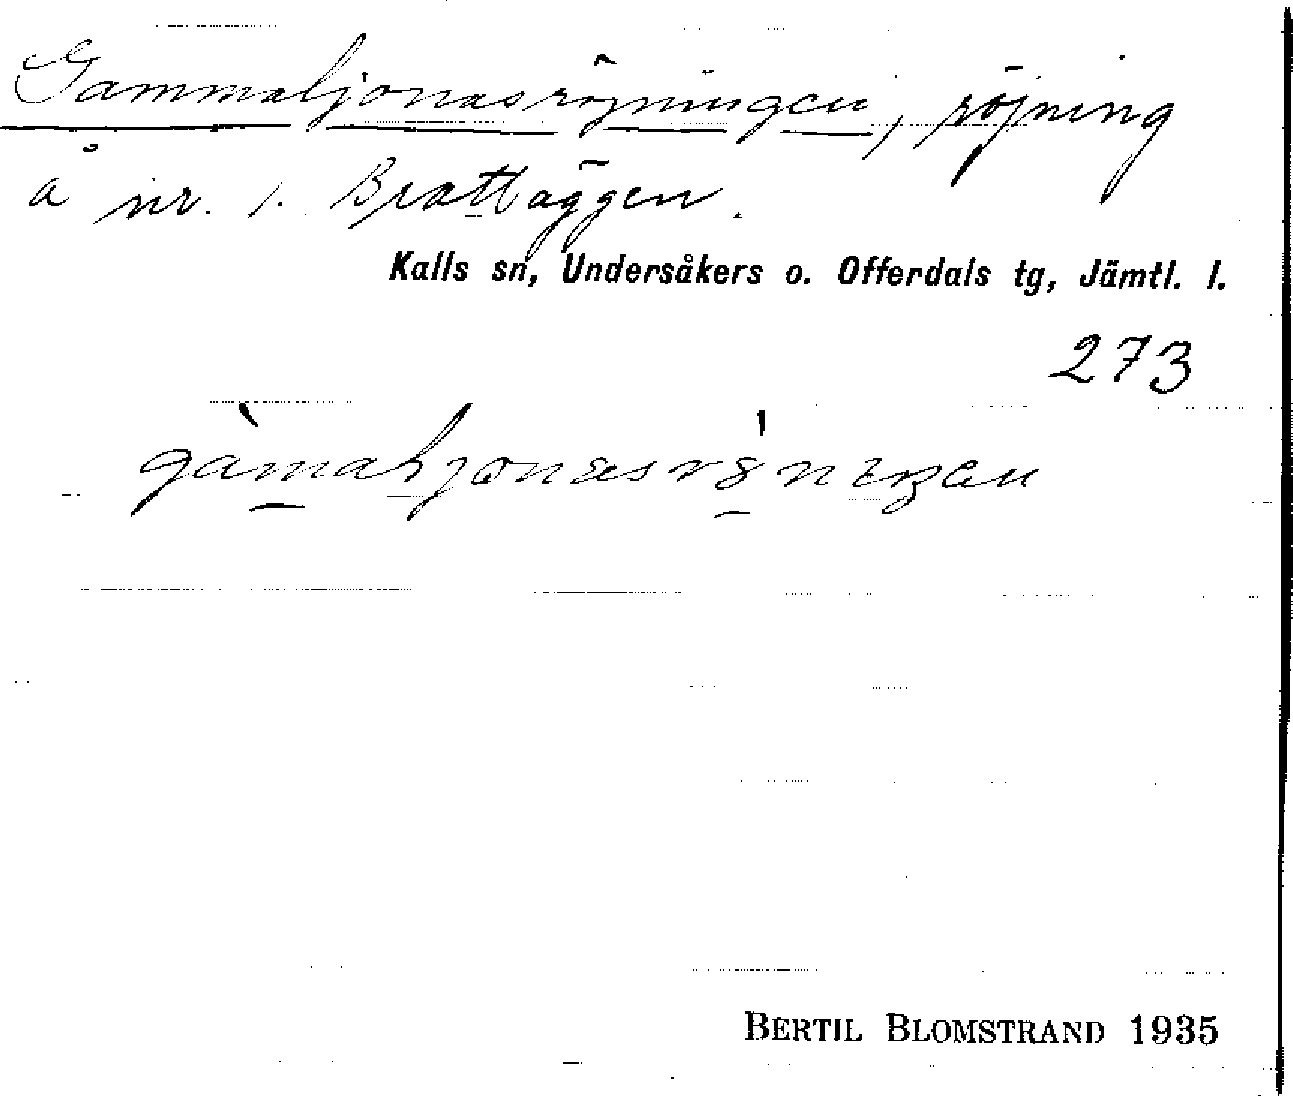 Gammaljonasröjningen, röjning
å nr. 1. Brattäggen.
Kalls sn, Undersåkers o. Offerdals tg, Jämtl. l.
273
BERTIL BLOMSTRAND 1935